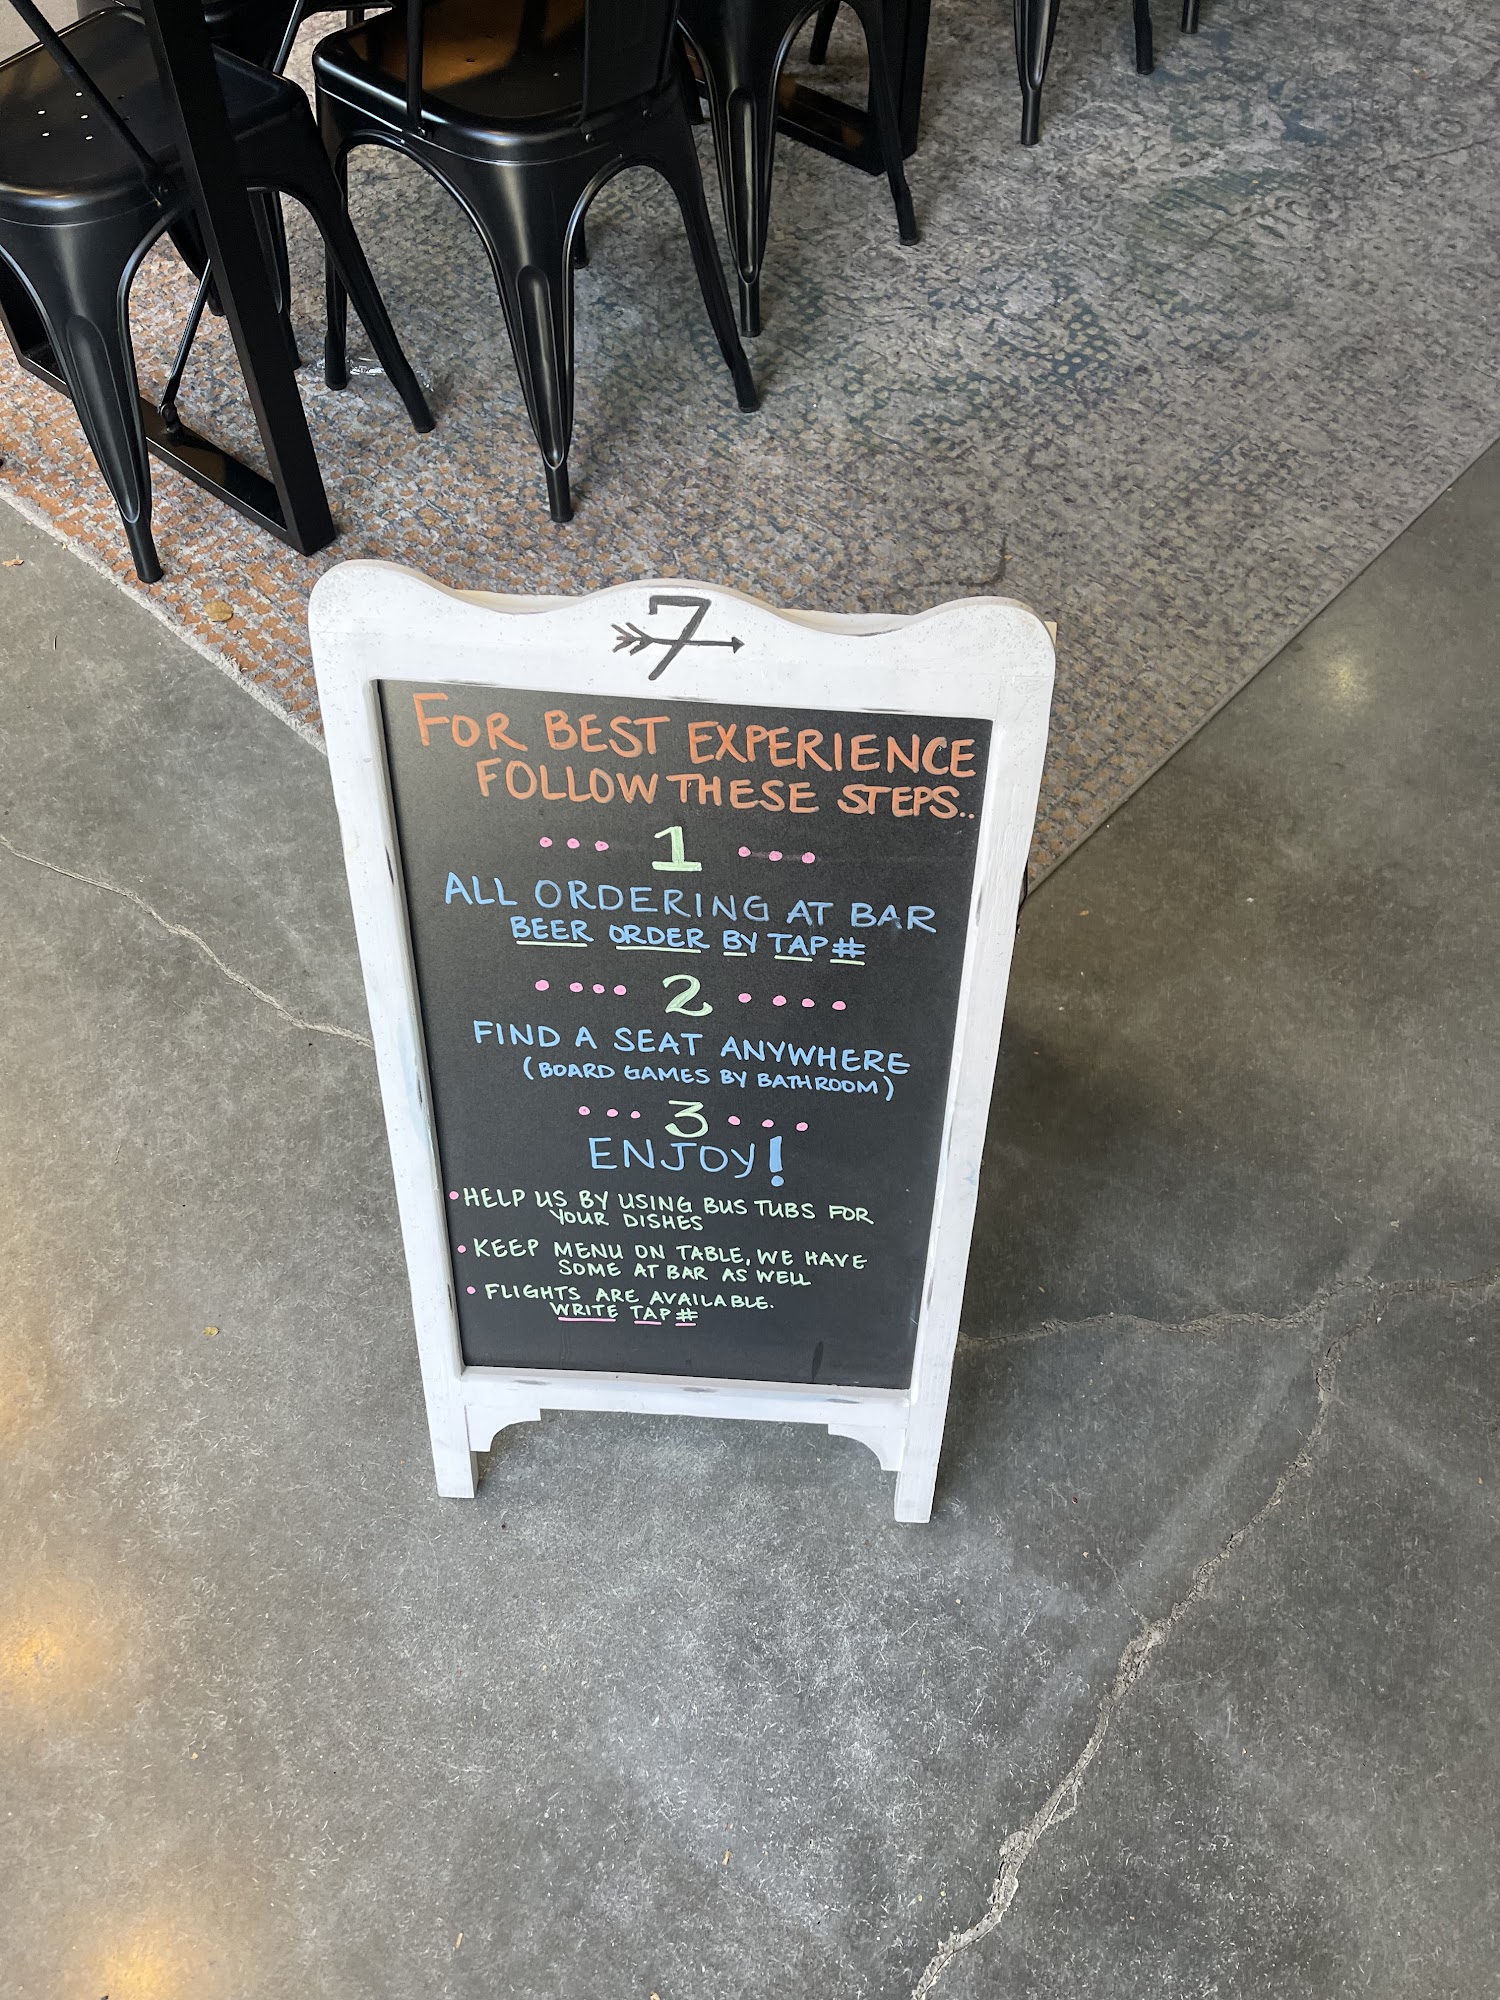 7
FOR BEST EXPERIENCE
FOLLOW THESE STEPS..
1
ALL ORDERING AT BAR
BEER ORDER BY TAP #
2
FIND A SEAT ANYWHERE
(BOARD GAMES BY BATHROOM)
3
ENJOY!
• HELP US BY USING BUS TUBS FOR
YOUR DISHES
• KEEP MENU ON TABLE, WE HAVE
SOME AT BAR AS WELL
• FLIGHTS ARE AVAILABLE.
WRITE TAP #